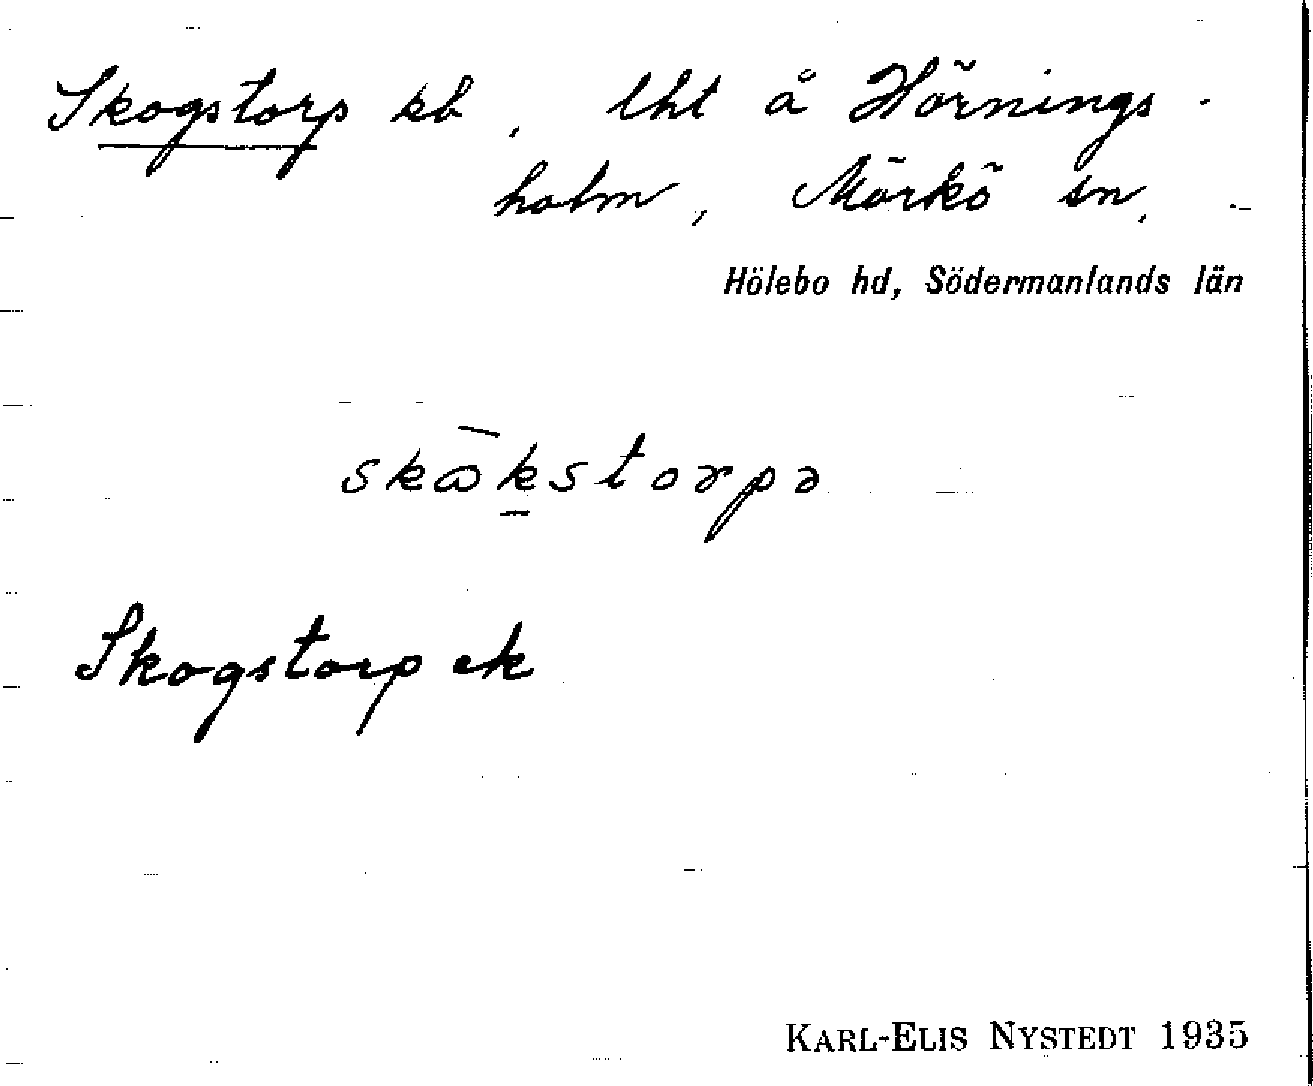 Skogstorp kb, lht å Hörnings-
holm, Mörkö sn,
Hölebo hd, Södermanlands län
skɷ̀kstorpə
Skogstorp ek
KARL-ELIS NYSTEDT 1935